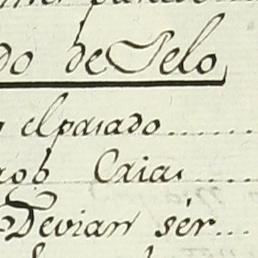 do de Pelo
elpasado
Crias
Devian sér